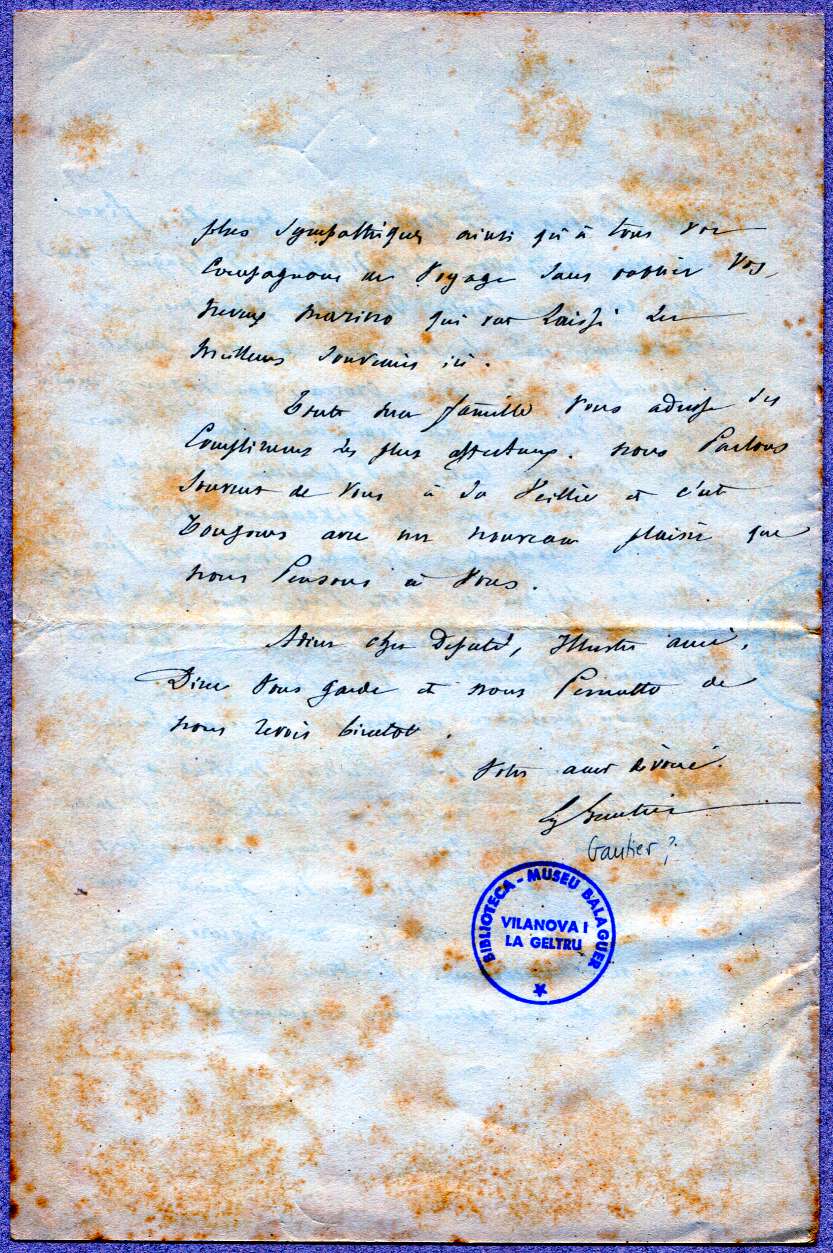 plus sympathiques ainsi qu'à tous vos
Compagnons de Voyage sans oublier Vos
neveux Marino qui ont Laissé des
meilleurs souvenirs ici.
Toute ma famille Vous adresse ses
Complimens les plus affectueux. nous Parlons
souvent de Vous à la Veillée et c'est
Toujours avec un nouveau plaisir que
nous Pensons à Vous.
Adieu cher Député, Illustre ami,
Dieu Vous garde et nous Permette de
nous revoir bientot.
Votre ami dévoué.
Gautier
Gautier?
BIBLIOTECA - MUSEU BALAGUER
VILANOVA I
LA GELTRU